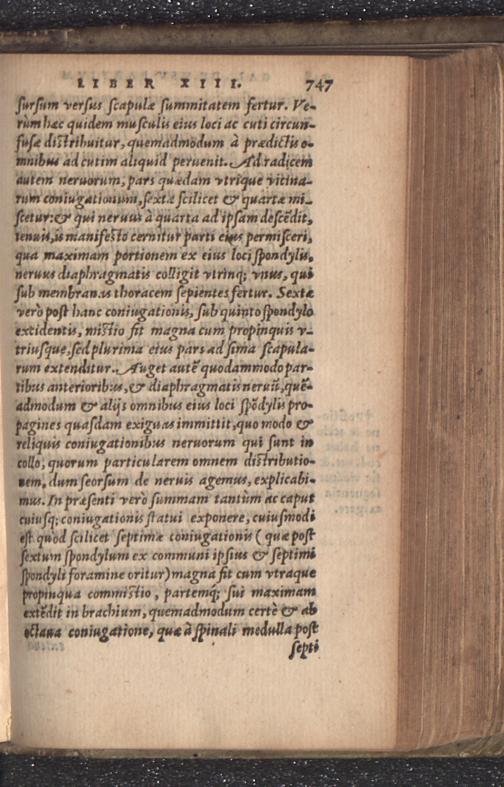 LIBER XIII. 747
sursum versus scapulæ summitatem fertur. Ve-
rùm hæc quidem musculis eius loci ac cuti circun-
fusæ distribuitur, quemadmodum à prædictis o-
mnibus ad cutim aliquid peruenit. Ad radicem
autem neruorum, pars quædam vtrique vicina-
rum coniugationum, sextæ scilicet & quartæ mi-
scetur: & qui neruus à quarta ad ipsam descēdit,
tenuis, is manifesto cernitur parti eius permisceri,
qua maximam portionem ex eius loci spondylis,
neruus diaphragmatis colligit vtrinq; vnus, qui
sub membranas thoracem sepientes fertur. Sextæ
verò post hanc coniugationis, sub quinto spondylo
excidentis, mistio fit magna cum propinquis v-
triusque, sed plurima eius pars ad sima scapula-
rum extenditur. Auget autē quodammodo par-
tibus anterioribus, & diaphragmatis neruū, quē-
admodum & alijs omnibus eius loci spōdylis pro-
pagines quasdam exiguas immittit, quo modo &
reliquis coniugationibus neruorum qui sunt in
collo, quorum particularem omnem distributio-
nem, dum seorsum de neruis agemus, explicabi-
mus. In præsenti verò summam tantùm ac caput
cuiusq; coniugationis statui exponere, cuiusmodi
est quòd scilicet septimæ coniugationis ( quæ post
sextum spondylum ex communi ipsius & septimi
spondyli foramine oritur) magna fit cum vtraque
propinqua commistio, partemq; sui maximam
extēdit in brachium, quemadmodum certè & ab
octaua coniugatione, quæ à spinali modulla post
septi